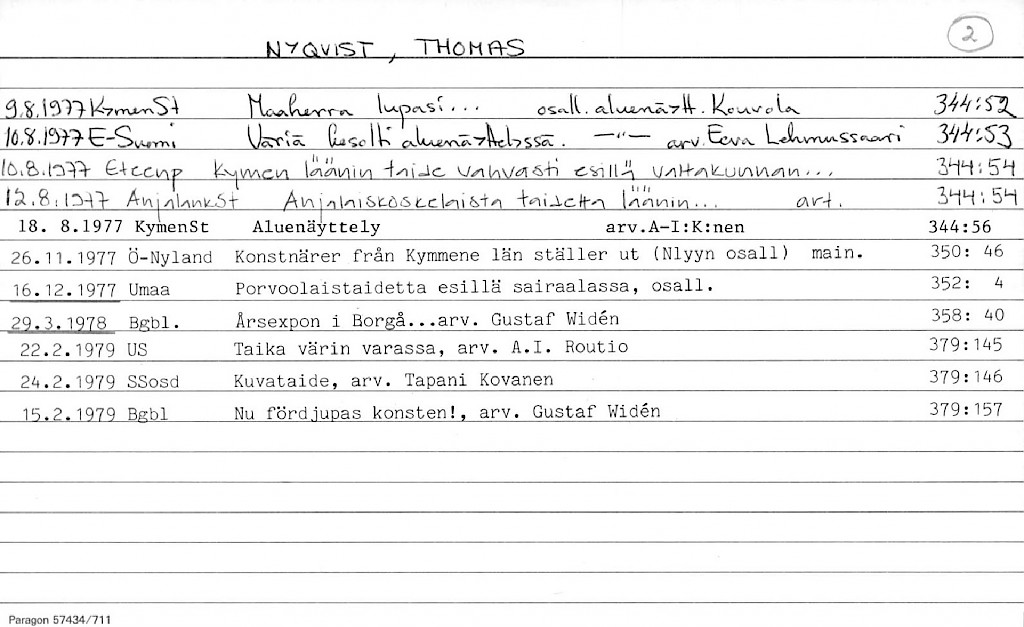 2
NYQVIST, THOMAS
9.8.1977 KymenSt Maaherra lupasi... osall. aluenäytt. Kouvola 344:52
10.8.1977 E-Suomi Väriä aluenäyttelyssä. —"— arv. Eeva Lehmussaari 344:53
10.8.1977 Eteenp Kymen läänin taide vahvasti esillä valtakunnan... 344:54
12.8.1977 AnjalankSt Anjalaiskoskelaista taidetta läänin... art. 344:54
18. 8.1977 KymenSt Aluenäyttely arv.A-I:K:nen 344:56
26.11.1977 Ö-Nyland Konstnärer från Kymmene län ställer ut (Nlyyn osall) main. 350: 46
16.12.1977 Umaa Porvoolaistaidetta esillä sairaalassa, osall. 352: 4
29.3.1978 Bgbl. Årsexpon i Borgå...arv. Gustaf Widén 358: 40
22.2.1979 US Taika värin varassa, arv. A.I. Routio 379:145
24.2.1979 SSosd Kuvataide, arv. Tapani Kovanen 379:146
15.2.1979 Bgbl Nu fördjupas konsten!, arv. Gustaf Widén 379:157
Paragon 57434/711